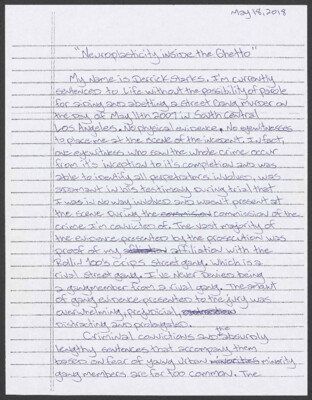 May 18, 2018
"Neuroplasticity inside the Ghetto"
My Name is Derrick Starks. I'm currently
sentenced to Life without the possibility of parole
for aiding and abetting a street Gang Murder on
the day of May 11th 2007 in South Central
Los Angeles. No physical evidence. No eyewitnesses
to place me at the scene of the incedent. Infact,
one eyewitness who saw the whole crime occur
from it's inception to it's completion and was
able to identify all perpetrators involved, was
adamant in his testimony during trial that
I was in no way involved and wasn't present at
the scene During the commission of the
crime I'm convicted of. The vast majority of
the evidence presented by the prosecution was
proof of my affiliation with the
Rollin 100's crips street gang. Which is a
rival street gang. I've Never Denied being
a gang member from a rival gang. The amount
of gang evidence presented to the jury was
overwhelming, prejudicial,
distracting and prolonged.
Criminal convictions and the absurdly
lengthy sentences that accompany them
based on fear of young urban minority
gang members are far too common. The